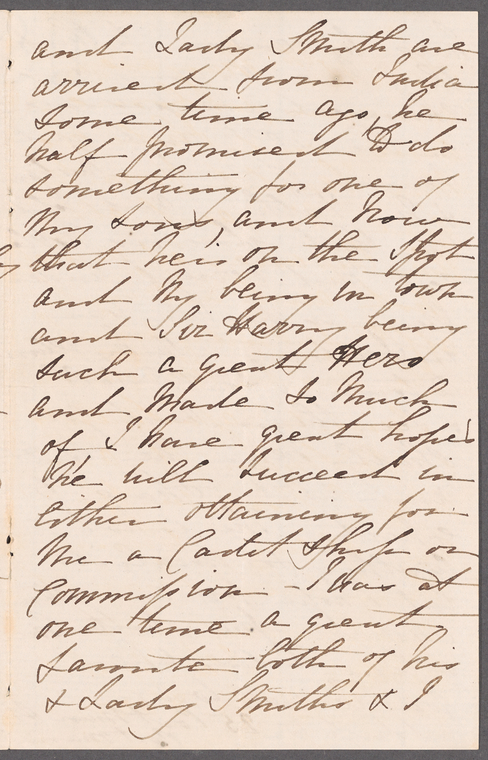 and Lady Smith are
arrived from India
some time ago, he
half promised to do
something for one of
my sons, and now
that he is on the spot
and my being in town
and Sir Harry being
such a great Hero
and made so much
of I have great hopes
he will succeed in
either obtaining for
me a Cadet Ship or
Commission - I was at
one time a great
favorite both of his
& Lady Smiths & I